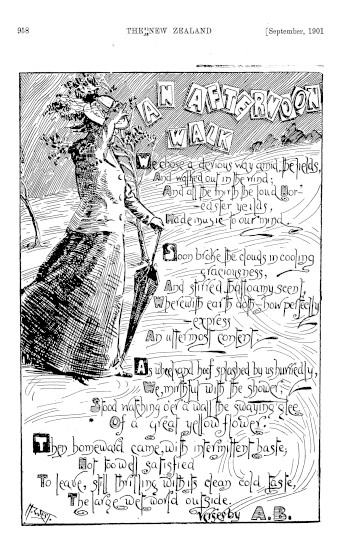 958 THE NEW ZEALAND [September, 1901
AN AFTERNOON
WALK
We chose a devious way amid the fields,
And walked out in the wind;
And all the mirth the loud Nor-
easter yeilds,
Made music to our mind.
Soon broke the clouds in cooling
graciousness,
And stirred that loamy scent,
Wherewith earth doth—how perfectly
express
An uttermost content.
As wheel and hoof splashed by us hurriedly,
We, mirthful with the shower,
Stood watching o'er a wall the swaying glee
Of a great yellow flower.
Then homeward came, with intermittent haste,
Not too well satisfied
To leave, still thrilling with its clean cold taste,
The large, wet world outside.
Verses by A.B.